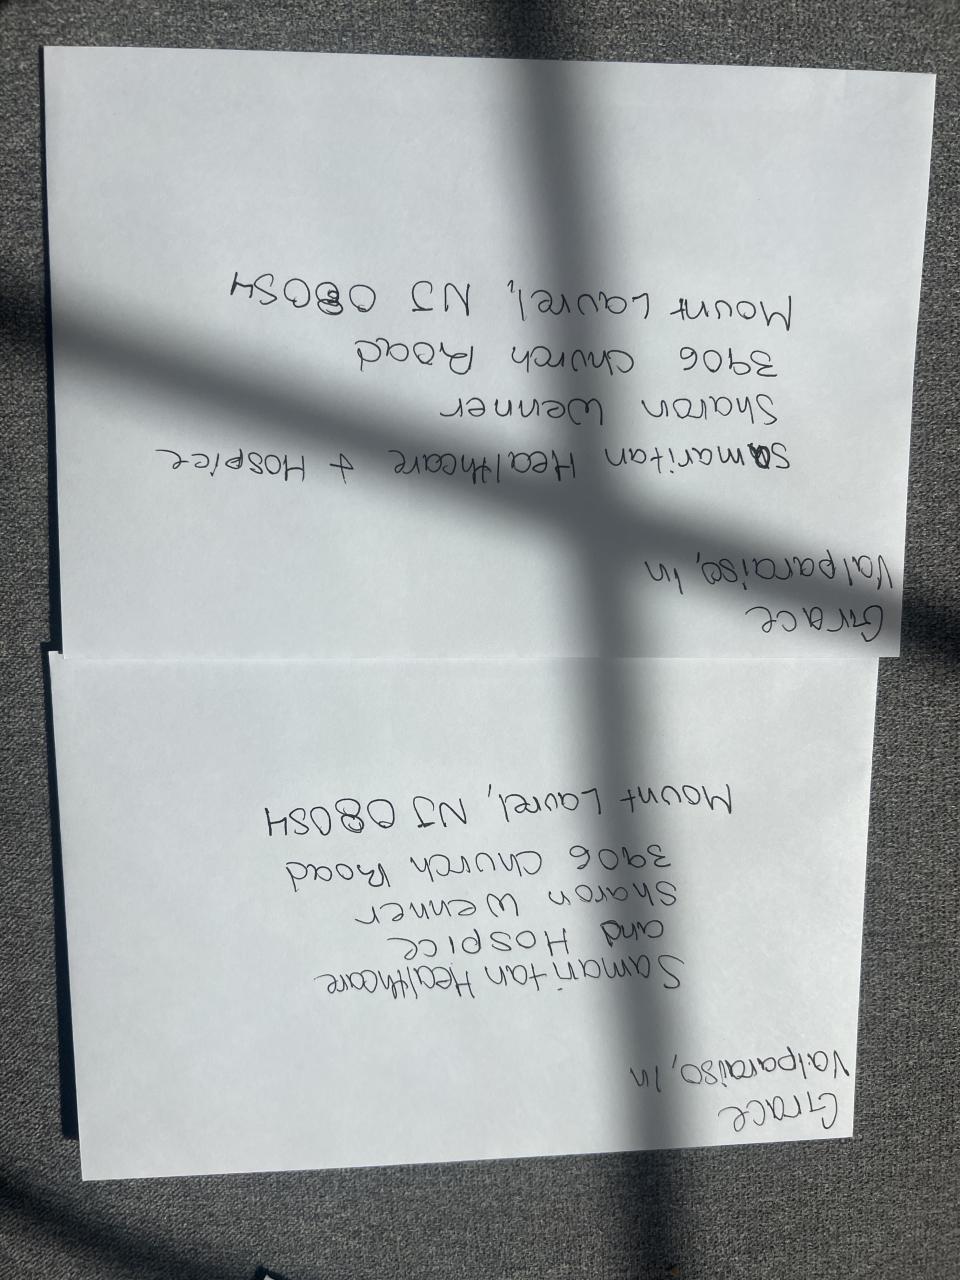 Grace
Valparaiso, In
Samaritan Healthcare
and Hospice
Sharon Wenner
3906 Church Road
Mount Laurel, NJ 08054
Grace
Valparaiso, In
Samaritan Healthcare + Hospice
Sharon Wenner
3906 Church Road
Mount Laurel, NJ 08054